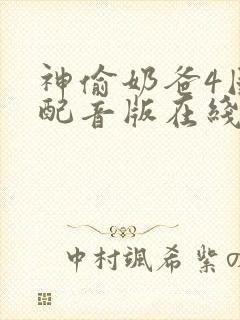 神偷奶爸4国
配音版在线
中村颯希紫の